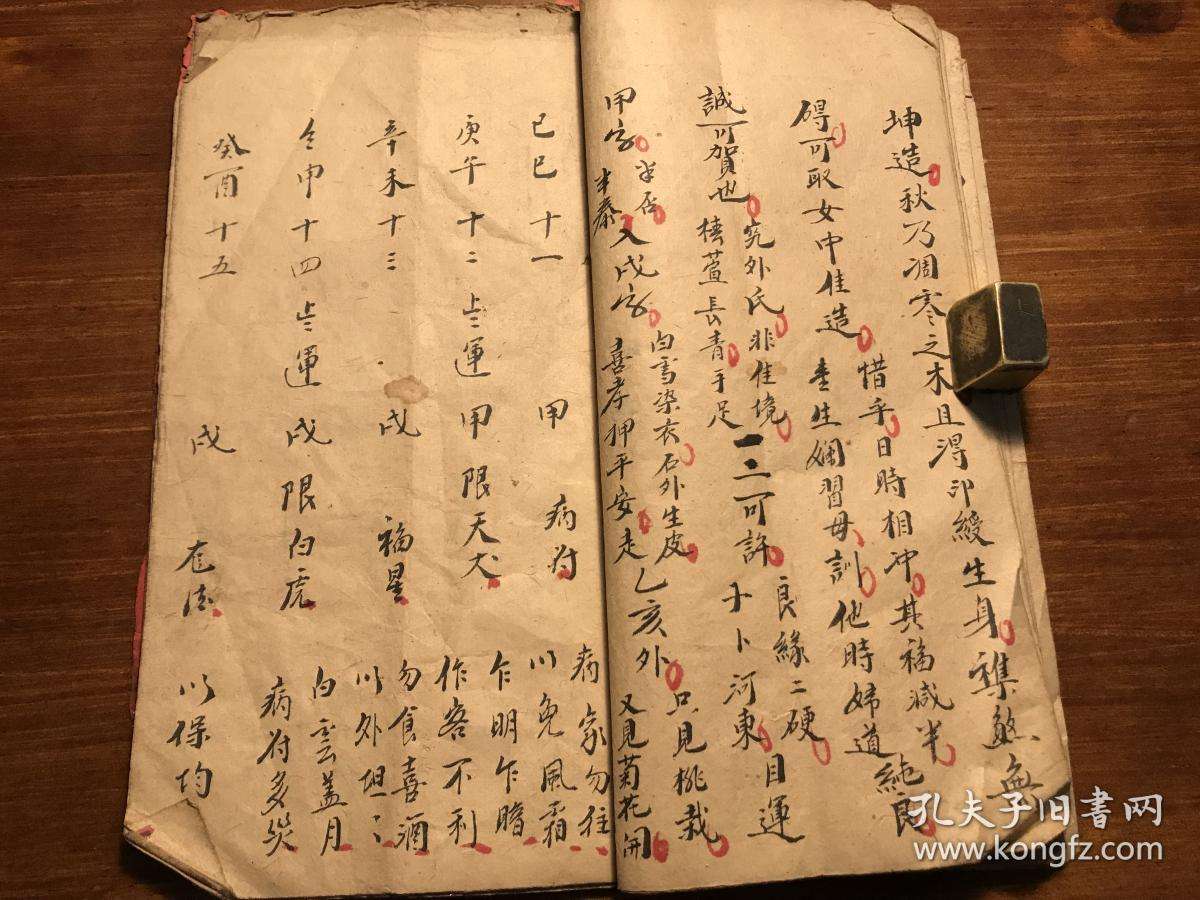 坤造秋乃凋零之木且淂印綬生身襍煞無
碍可取女中佳造惜乎日時相冲其福減半
幸生嫻習母訓他時婦道純良
誠可賀也究外氏非佳境良緣二硬
椿萱長青手足一二可許卜河東目運
甲字半否入戌字白雪染衣石外生皮只見桃栽
半泰喜孝押平安走乙亥外又見菊花開
己巳十一 甲 病符 病家勿往
以免風霜
庚午十二 上上運 甲限天犬 乍明乍暗
作客不利
辛未十三 戌 福星 勿食喜酒
以外坦〻
壬申十四 上上運 戌限白虎 白雲盖月
病符多災
癸酉十五 戌 龙德 以保均
孔夫子旧书网
www.kongfz.com